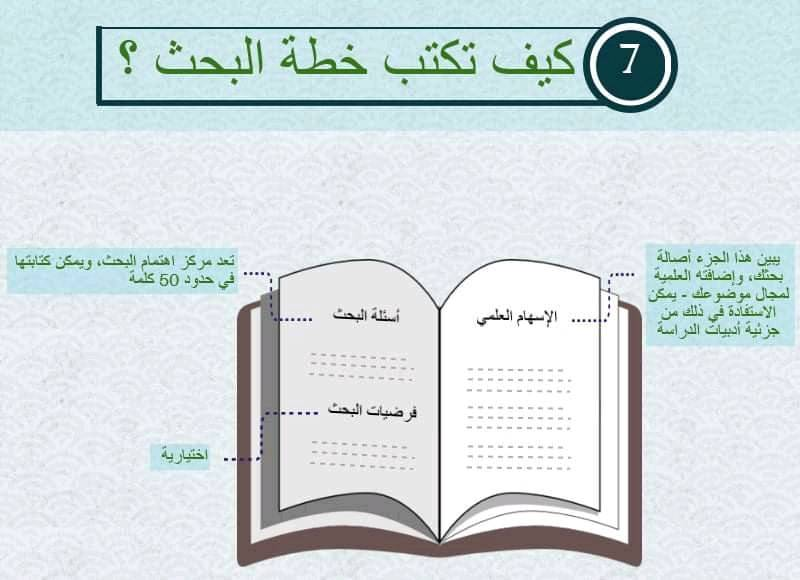 7
كيف تكتب خطة البحث ؟
يبين هذا الجزء أصالة
بحثك، وإضافته العلمية
لمجال موضوعك - يمكن
الاستفادة في ذلك من
جزئية أدبيات الدراسة
الإسهام العلمي
تعد مركز اهتمام البحث، ويمكن كتابتها
في حدود 50 كلمة
أسئلة البحث
فرضيات البحث
اختيارية